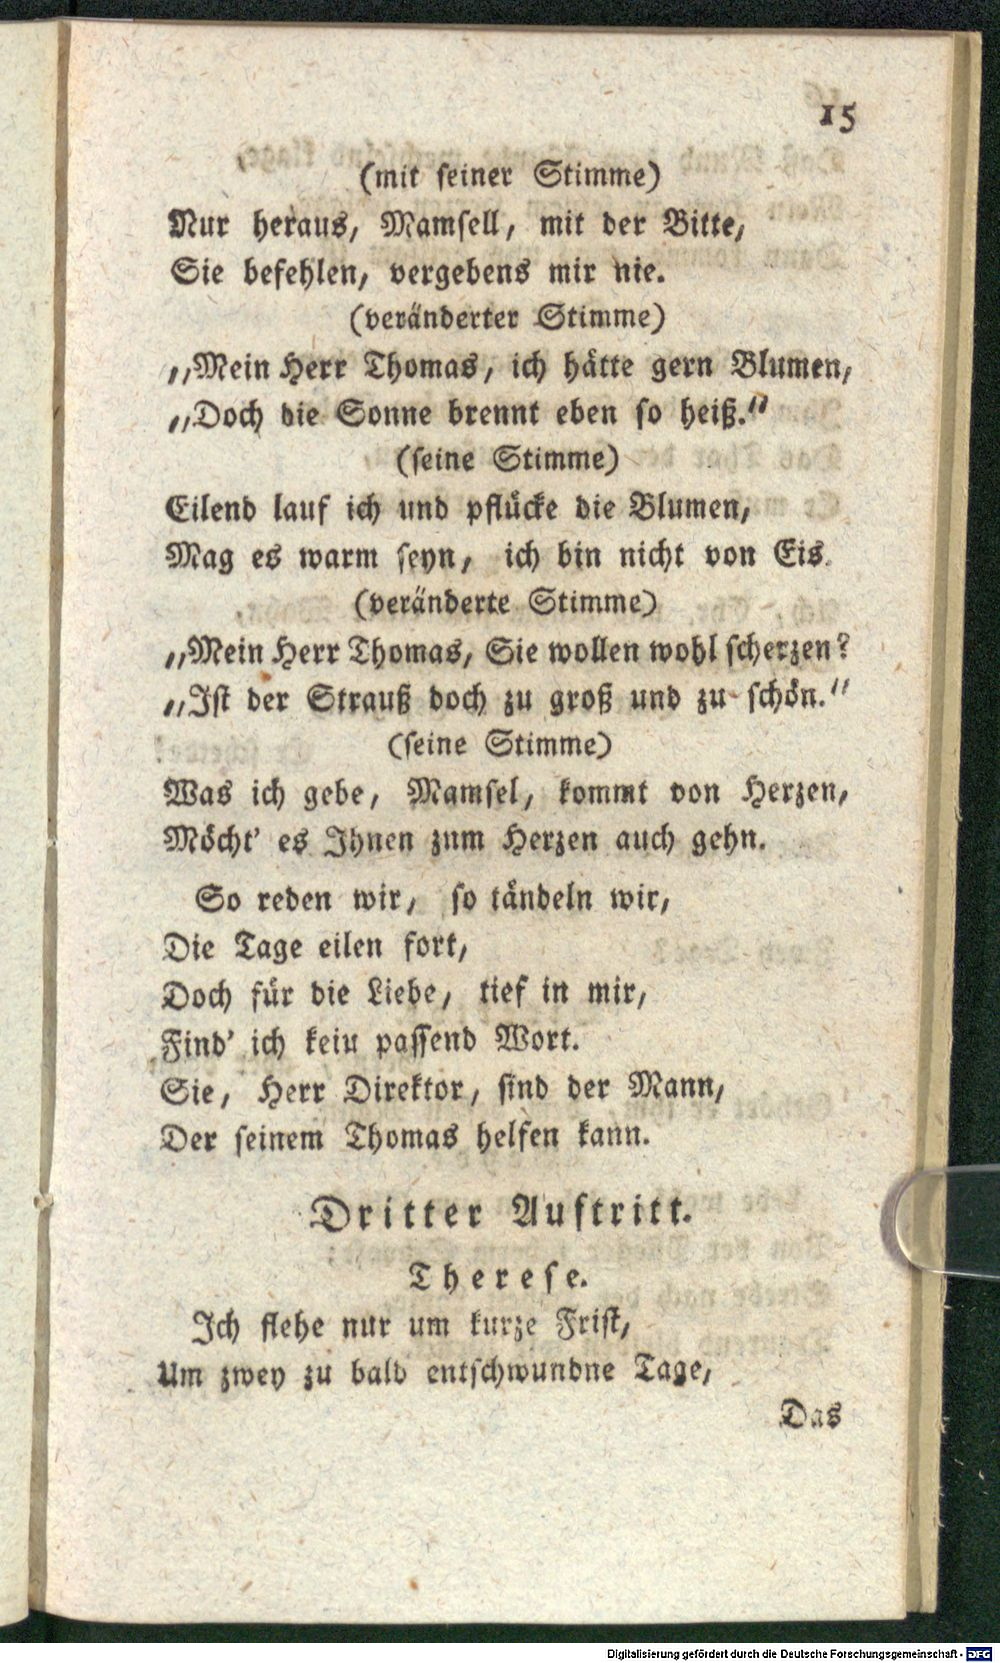 15
(mit seiner Stimme)
Nur heraus, Mamsell, mit der Bitte,
Sie befehlen, vergebens mir nie.
(veränderter Stimme)
„Mein Herr Thomas, ich hätte gern Blumen,
„Doch die Sonne brennt eben so heiß.“
(seine Stimme)
Eilend lauf ich und pflücke die Blumen,
Mag es warm seyn, ich bin nicht von Eis.
(veränderte Stimme)
„Mein Herr Thomas, Sie wollen wohl scherzen?
„Ist der Strauß doch zu groß und zu schön.“
(seine Stimme)
Was ich gebe, Mamsel, kommt von Herzen,
Möcht’ es Ihnen zum Herzen auch gehn.
So reden wir, so tändeln wir,
Die Tage eilen fort,
Doch für die Liebe, tief in mir,
Find’ ich keiu passend Wort.
Sie, Herr Direktor, sind der Mann,
Der seinem Thomas helfen kann.
Dritter Auftritt.
Therese.
Ich flehe nur um kurze Frist,
Um zwey zu bald entschwundne Tage,
Das
Digitalisierung gefördert durch die Deutsche Forschungsgemeinschaft - DFG